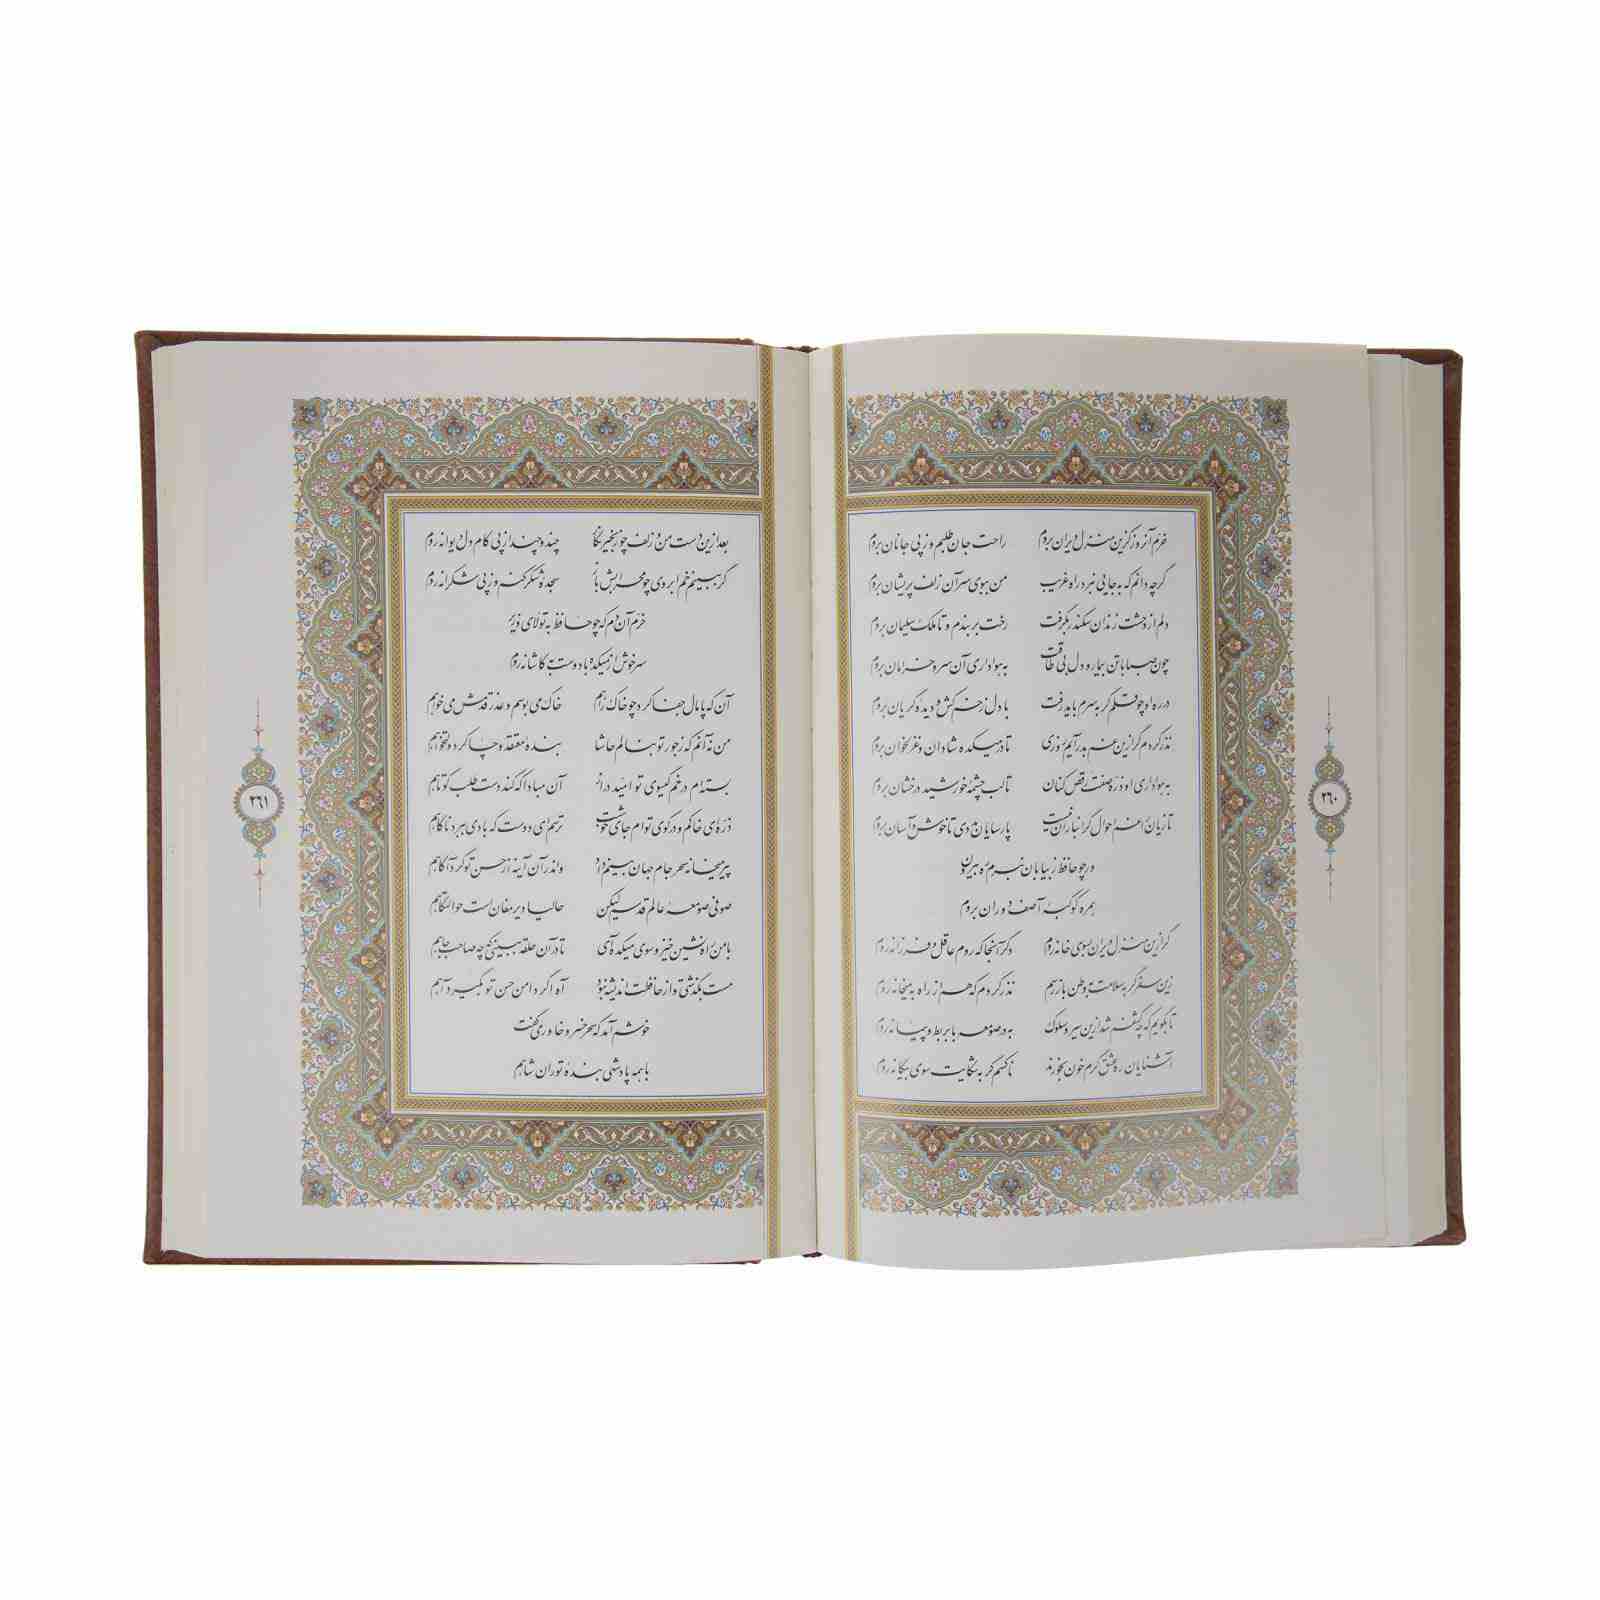 خرم آنروز کزین منزل ویران بروم راحت جان طلبم وز پی جانان بروم
گرچه دانم که به جایی نبرد راه غریب من ببوی سر آن زلف پریشان بروم
دلم از وحشت زندان سکندر بگرفت رخت بربندم و تا ملک سلیمان بروم
چون صبا با تن بیمار و دل بی طاقت به هواداری آن سرو خرامان بروم
در ره او چو قلم گر به سرم باید رفت با دل زخم کش و دیده گریان بروم
نذر کردم گر ازین غم بدر آیم روزی تا در میکده شادان و غزلخوان بروم
به هواداری او ذره صفت رقص کنان تا لب چشمهٔ خورشید درخشان بروم
تازیان را غم احوال گرانباران نیست پارسایان مددی تا خوش و آسان بروم
ور چو حافظ ز بیابان نبرم ره بیرون
همره کوکبهٔ آصف دوران بروم
گر ازین منزل ویران بسوی خانه روم دگر آنجا که روم عاقل و فرزانه روم
زین سفر گر به سلامت به وطن باز رسم نذر کردم که هم از راه به میخانه روم
تا بگویم که چه کشفم شد ازین سیر و سلوک به در صومعه با بربط و پیمانه روم
آشنایان ره عشق گرم خون بخورند ناکسم گر به شکایت سوی بیگانه روم
۲۶۰
بعد ازین دست من و زلف چو زنجیر نگار چند و چند از پی کام دل دیوانه روم
گر ببینم خم ابروی چو محرابش باز سجدهٔ شکر کنم وز پی شکرانه روم
خرم آن دم که چو حافظ به تولای وزیر
سرخوش از میکده با دوست به کاشانه روم
آن که پامال جفا کرد چو خاک راهم خاک می بوسم و عذر قدمش می خواهم
من نه آنم که ز جور تو بنالم حاشا بندهٔ معتقد و چاکر دولتخواهم
بسته‌ام در خم گیسوی تو امید دراز آن مبادا که کند دست طلب کوتاهم
ذره‌ای خاکم و در کوی توام جای خوشست ترسم ای دوست که بادی ببرد ناگاهم
پیر میخانه سحر جام جهان بینم داد واندر آن آینه از حسن تو کرد آگاهم
صوفی صومعهٔ عالم قدسم لیکن حالیا دیر مغان است حوالتگاهم
با من راه نشین خیز و سوی میکده آی تا در آن حلقه ببینی که چه صاحب جاهم
مست بگذشتی و از حافظت اندیشه نبود آه اگر دامن حسن تو بگیرد آهم
خوشم آمد که سحر خسرو خاور می‌گفت
با همه پادشهی بندهٔ تورانشاهم
۲۶۱